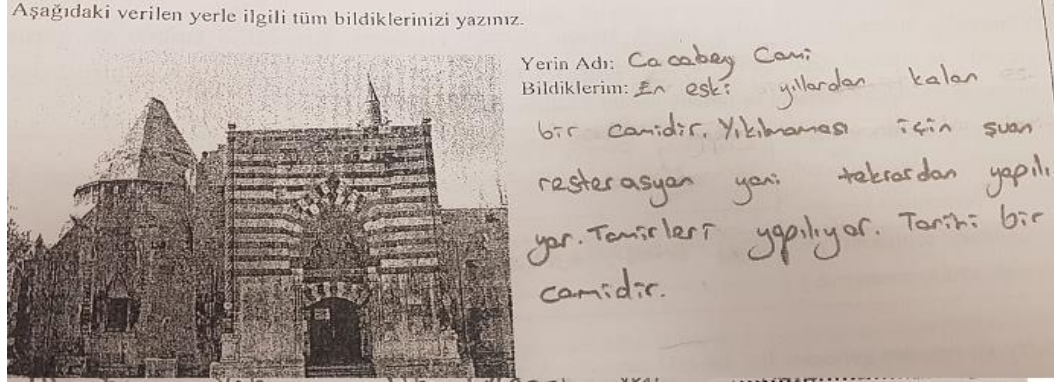 Aşağıdaki verilen yerle ilgili tüm bildiklerinizi yazınız.
Yerin Adı: Cacabey Cami
Bildiklerim: En eski yıllardan kalan
bir camidir. Yıkılmaması için şuan
resterasyan yani tekrardan yapılı
yor. Tamirleri yapılıyor. Tarihi bir
camidir.